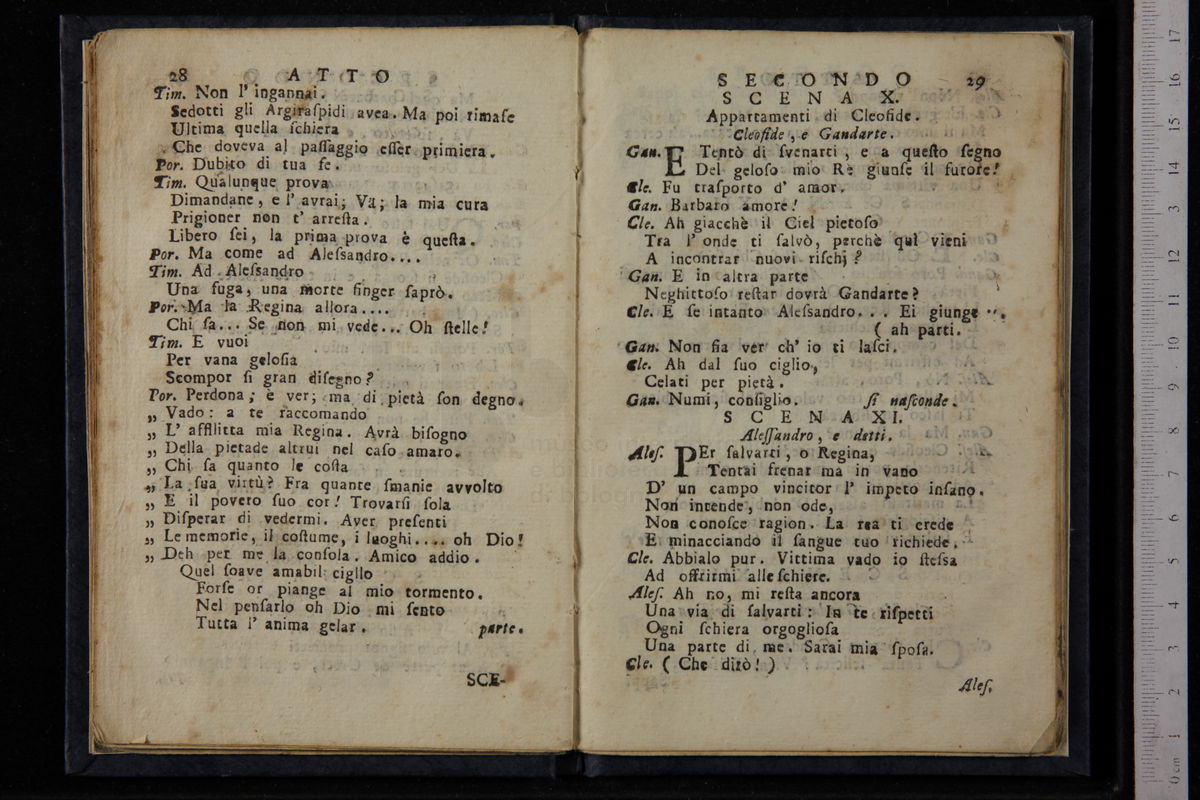 28 ATTO
Tim. Non l' ingannai.
Sedotti gli Argiraſpidi avea. Ma poi rimaſe
Ultima quella ſchiera
Che doveva al paſſaggio eſſer primiera.
Por. Dubito di tua fe.
Tim. Qualunque prova
Dimandane, e l' avrai; Va; la mia cura
Prigioner non t' arreſta.
Libero ſei, la prima prova è queſta.
Por. Ma come ad Aleſsandro....
Tim. Ad Aleſsandro
Una fuga, una morte finger ſaprò.
Por. Ma la Regina allora....
Chi ſa... Se non mi vede... Oh ſtelle!
Tim. E vuoi
Per vana geloſia
Scompor ſi gran diſegno?
Por. Perdona; è ver; ma di pietà ſon degno.
„ Vado: a te raccomando
„ L' afflitta mia Regina. Avrà biſogno
„ Della pietade altrui nel caſo amaro.
„ Chi ſa quanto le coſta
„ La ſua virtù? Fra quante ſmanie avvolto
„ E il povero ſuo cor! Trovarſi ſola
„ Diſperar di vedermi. Aver preſenti
„ Le memorie, il coſtume, i luoghi.... oh Dio!
„ Deh per me la conſola. Amico addio.
Quel ſoave amabil ciglio
Forſe or piange al mio tormento.
Nel penſarlo oh Dio mi ſento
Tutta l' anima gelar. parte.
SCE-
SECONDO 29
SCENA X.
Appartamenti di Cleofide.
Cleofide, e Gandarte.
Gan. E Tentò di ſvenarti, e a queſto ſegno
Del geloſo mio Rè giunſe il furore!
Cle. Fu traſporto d' amor.
Gan. Barbaro amore!
Cle. Ah giacchè il Ciel pietoſo
Tra l' onde ti ſalvò, perchè quì vieni
A incontrar nuovi riſchj?
Gan. E in altra parte
Neghittoſo reſtar dovrà Gandarte?
Cle. E ſe intanto Aleſsandro... Ei giunge ...
( ah parti.
Gan. Non fia ver ch' io ti laſci.
Cle. Ah dal ſuo ciglio,
Celati per pietà.
Gan. Numi, conſiglio. ſi naſconde.
SCENA XI.
Aleſſandro, e detti.
Aleſ. PEr ſalvarti, o Regina,
Tentai frenar ma in vano
D' un campo vincitor l' impeto inſano.
Non intende, non ode,
Non conoſce ragion. La rea ti crede
E minacciando il ſangue tuo richiede.
Cle. Abbialo pur. Vittima vado io ſteſsa
Ad offrirmi alle ſchiere.
Aleſ. Ah no, mi reſta ancora
Una via di ſalvarti: In te riſpetti
Ogni ſchiera orgoglioſa
Una parte di me. Sarai mia ſpoſa.
Cle. ( Che dirò! )
Aleſ.